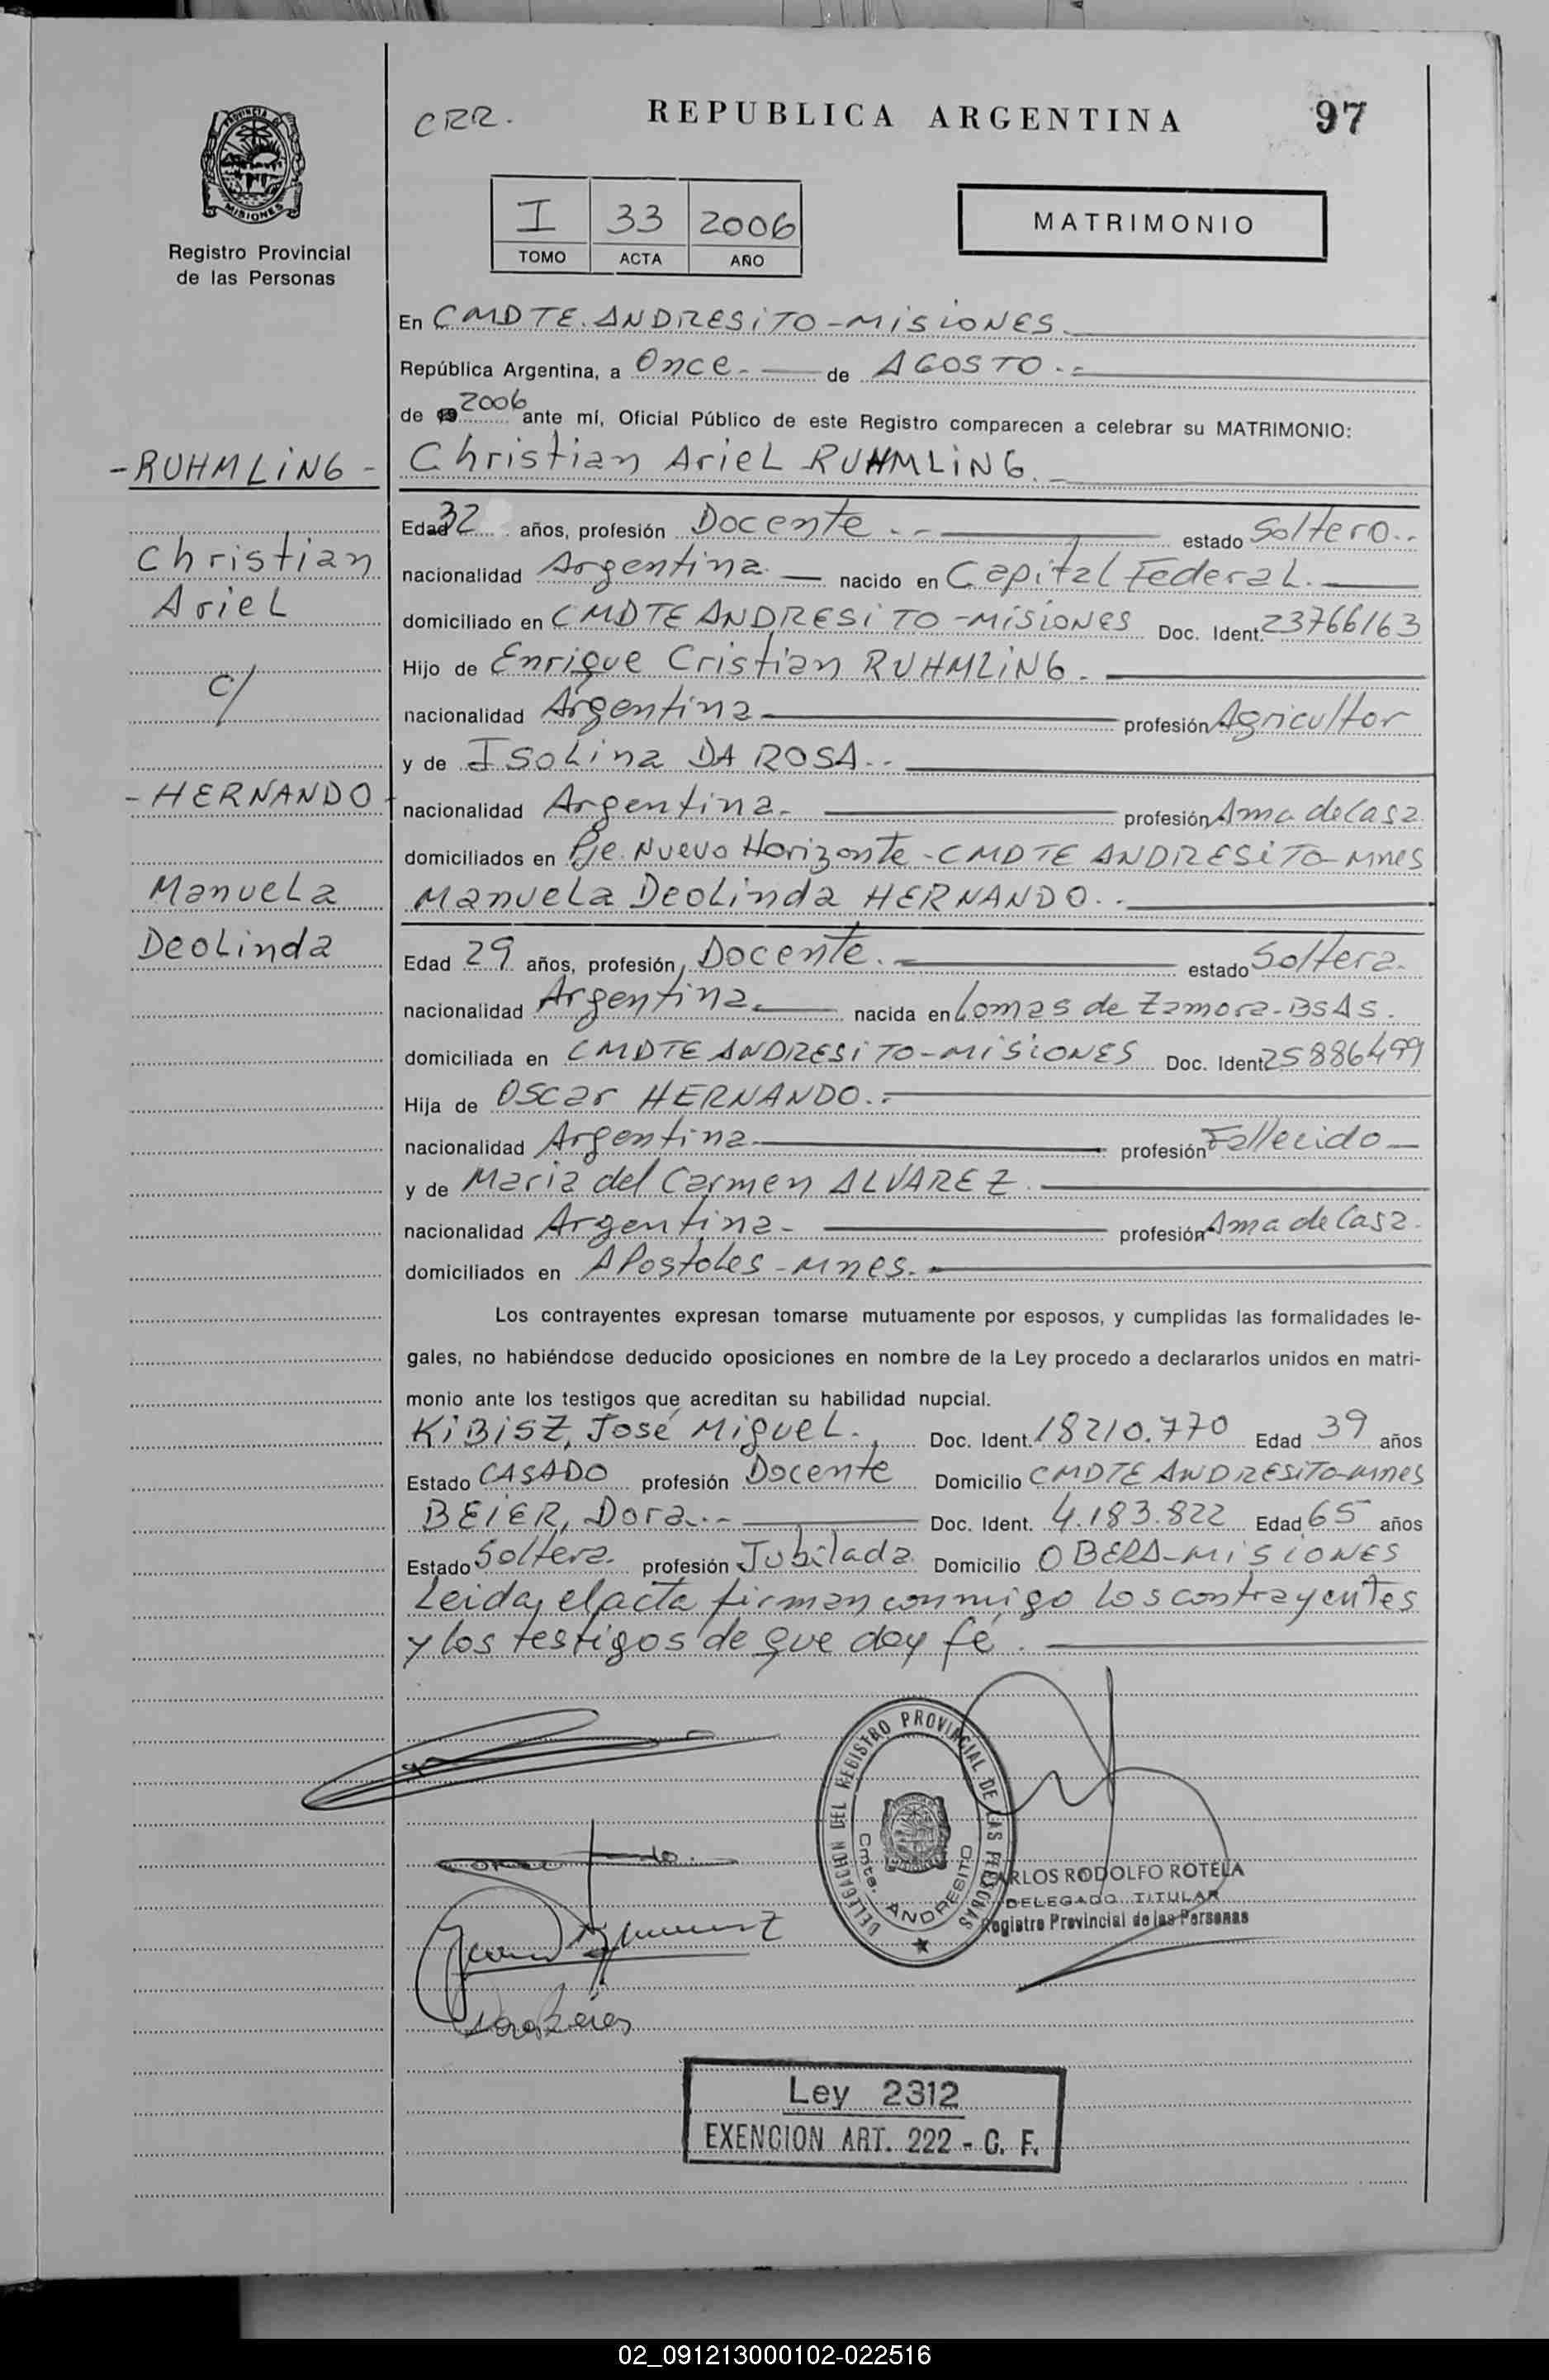 CRR.
REPUBLICA ARGENTINA
97
PROVINCIA DE
MISIONES
Registro Provincial
de las Personas
I 33 2006
TOMO ACTA AÑO
MATRIMONIO
En CMDTE. ANDRESITO-MISIONES.
República Argentina, a Once.- de AGOSTO.-
de 19 2006 ante mí, Oficial Público de este Registro comparecen a celebrar su MATRIMONIO:
-RUHMLING-
Christian Ariel RUHMLING.-
Edad 32 años, profesión Docente.- estado Soltero..
Christian
nacionalidad Argentina nacido en Capital Federal.
Ariel
domiciliado en CMDTE ANDRESITO-MISIONES Doc. Ident. 23766163
Hijo de Enrique Cristian RUHMLING.
c/
nacionalidad Argentina profesión Agricultor
y de Isolina DA ROSA..
-HERNANDO-
nacionalidad Argentina. profesión Ama de Casa.
domiciliados en Pje. Nuevo Horizonte-CMDTE ANDRESITO-Mnes
Manuela
Manuela Deolinda HERNANDO..
Deolinda
Edad 29 años, profesión Docente. estado Soltera.
nacionalidad Argentina. nacida en Lomas de Zamora-BSAS.
domiciliada en CMDTE ANDRESITO-MISIONES Doc. Ident. 25886499
Hija de Oscar HERNANDO.-
nacionalidad Argentina profesión Fallecido
y de Maria del Carmen ALVAREZ.
nacionalidad Argentina- profesión Ama de Casa.
domiciliados en APostoles-Mnes.
Los contrayentes expresan tomarse mutuamente por esposos, y cumplidas las formalidades le-
gales, no habiéndose deducido oposiciones en nombre de la Ley procedo a declararlos unidos en matri-
monio ante los testigos que acreditan su habilidad nupcial.
KIBISZ, José Miguel. Doc. Ident. 18210.770 Edad 39 años
Estado CASADO profesión Docente Domicilio CMDTE ANDRESITO-Mnes
BEIER, Dora.- Doc. Ident. 4.183.822 Edad 65 años
Estado Soltera. profesión Jubilada Domicilio OBERA-MISIONES
Leida, el acta firman conmigo los contrayentes
y los testigos de que doy fé.
DELEGACION DEL REGISTRO PROVINCIAL DE LAS PERSONAS
Cmte. ANDRESITO
CARLOS RODOLFO ROTELA
DELEGADO TITULAR
Registro Provincial de las Personas
Dora Beier
Ley 2312
EXENCION ART. 222 - C. F.
02_091213000102-022516